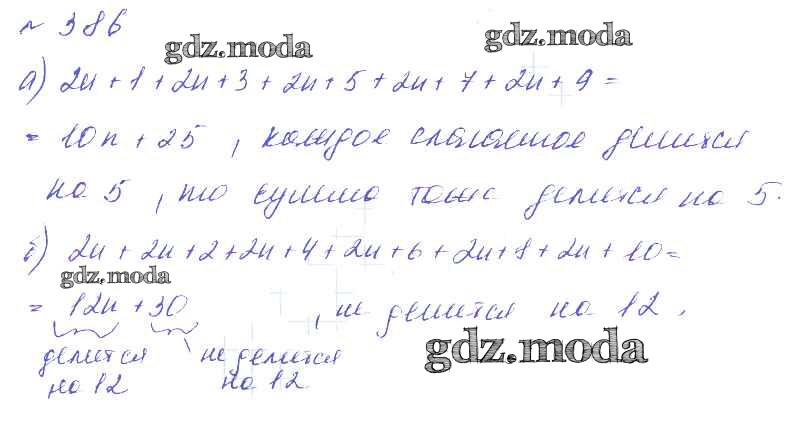 № 386
gdz.moda
gdz.moda
а) 2n + 1 + 2n + 3 + 2n + 5 + 2n + 7 + 2n + 9 =
= 10n + 25 , каждое слагаемое делится
на 5 , то сумма тоже делится на 5.
б) 2n + 2n + 2 + 2n + 4 + 2n + 6 + 2n + 8 + 2n + 10 =
gdz.moda
= 12n + 30 , не делится на 12 .
gdz.moda
делится не делится
на 12 на 12.